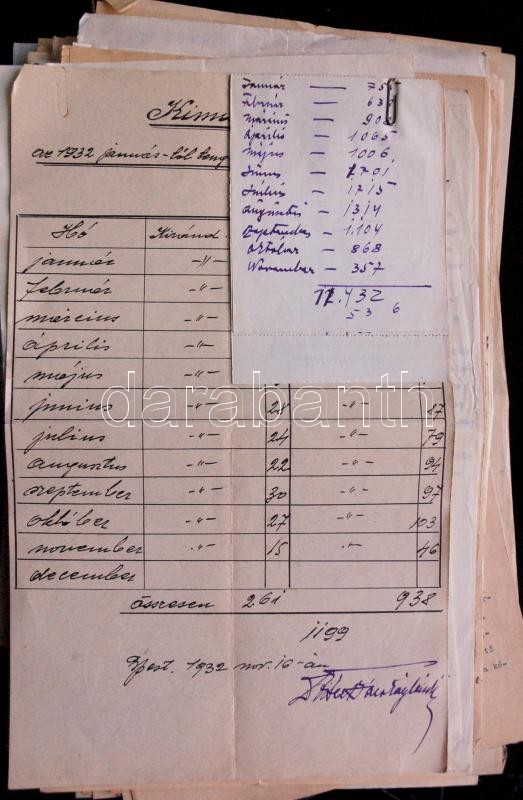 Január — 75
Február — 63
Március — 90
Április — 1065
Május — 1006
Június — 1701
Július — 1715
Augusztus — 1314
Szeptember — 1.104
Október — 868
November — 357
11.432
5 3 6
Kimu
az 1932 január-tól
Hó Kiránd.
január -"-
február -"-
március -"-
április -"-
május -"-
június -"- 28 -"- 87
július -"- 24 -"- 79
augusztus -"- 22 -"- 94
szeptember -"- 30 -"- 97
október -"- 27 -"- 103
november -"- 15 -"- 46
december
összesen 261 938
1199
Bpest. 1932 nov. 16-án
darabanth